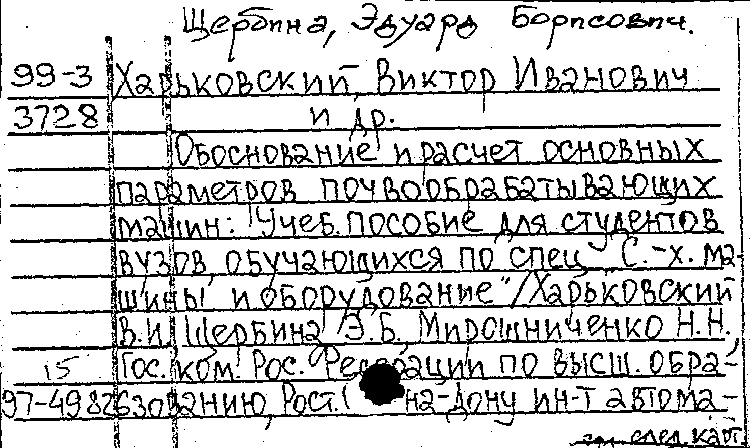 Щербина, Эдуард Борисович.
99-3 Харьковский, Виктор Иванович
3728 и др.
Обоснование и расчет основных
параметров почвообрабатывающих
машин: Учеб. пособие для студентов
вузов, обучающихся по спец. "С.-х. ма-
шины и оборудование"/Харьковский
В.И., Щербина Э.Б., Мирошниченко Н.Н.,
15 Гос. ком. Рос. Федерации по высш. обра-
97-49826 зованию, Рост. на-Дону ин-т автома-
см. след. карт.